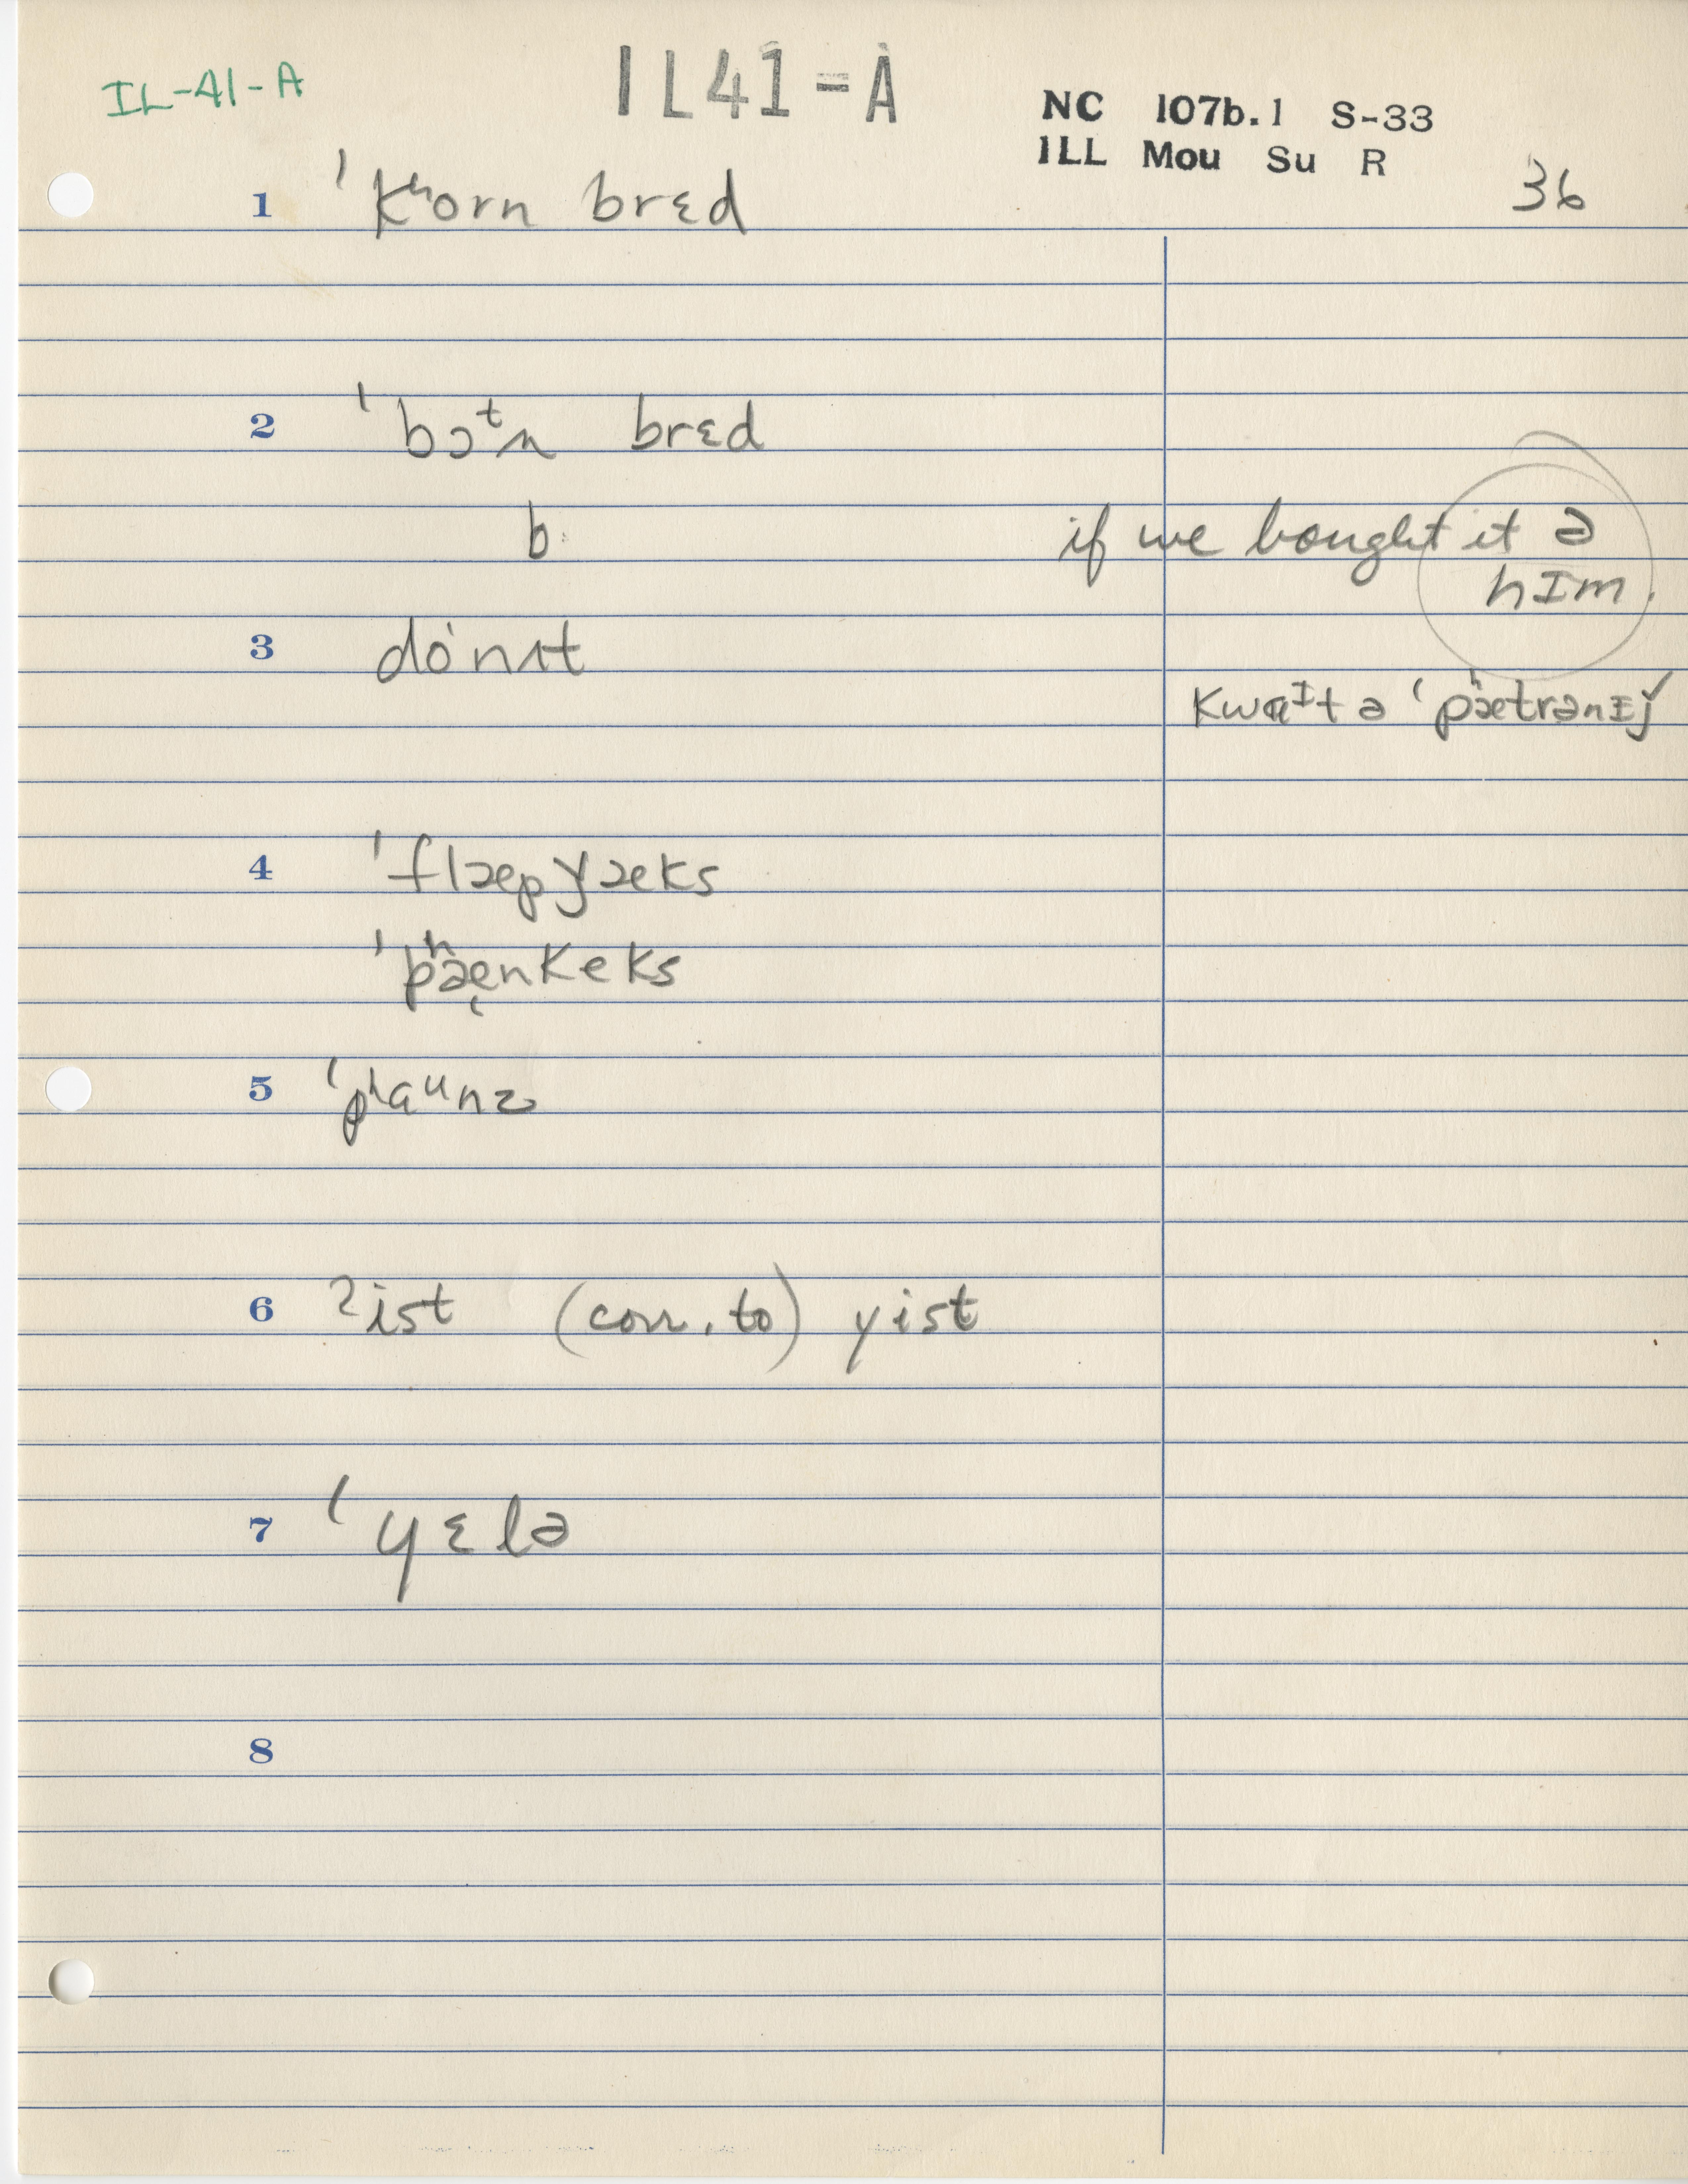 IL-41-A
IL41-A
NC 107b.1 S-33
ILL Mou Su R
36
1 ˈkʰorn brɛd
2 ˈbɔᵗn brɛd
b
if we bought it ə
hIm.
3 do'nʌt
kwɑᴵt ə ˈpʰætrənɪǰ
4 ˈflæpɉæks
ˈpʰæ̨nkeks
5 ˈpʰɑᵘnz
6 ʔist (corr. to) yist
7 ˈyɛlə
8